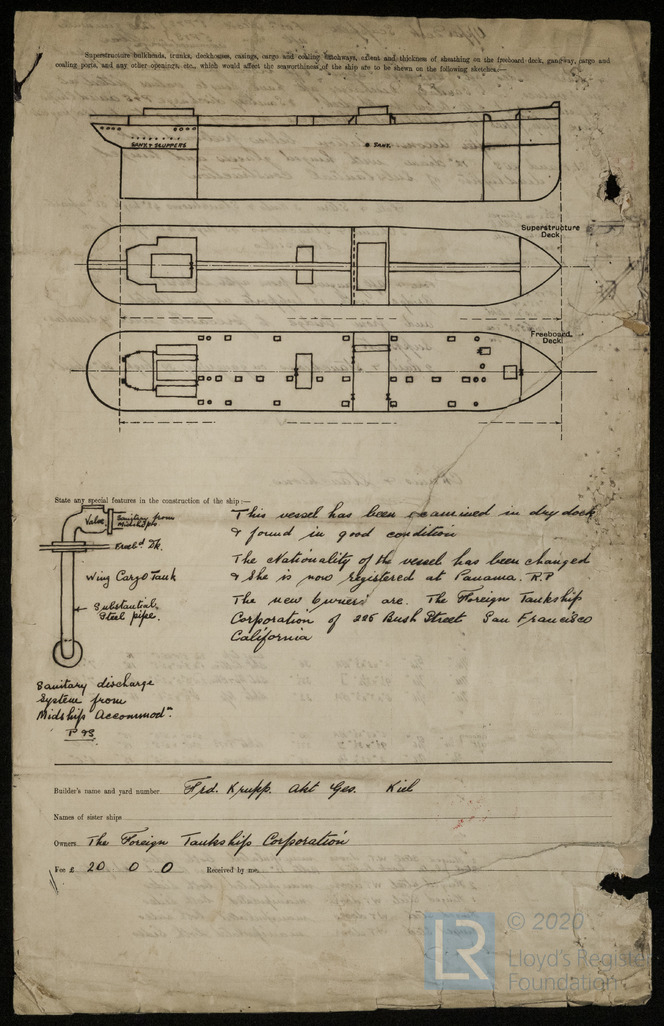 Superstructure bulkheads, trunks, deckhouses, casings, cargo and coaling hatchways, extent and thickness of sheathing on the freeboard deck, gangway, cargo and
coaling ports, and any other openings, etc., which would affect the seaworthiness of the ship are to be shewn on the following sketches:—
SANY & SCUPPERS
SANY.
Superstructure
Deck
Freeboard
Deck
State any special features in the construction of the ship:—
Valve
Sanitary from
Midships
Freebd Dk.
Wing Cargo Tank
Substantial
Steel pipe.
Sanitary discharge
System from
Midships Accommodn.
P &S
This vessel has been examined in dry dock
& found in good condition
The Nationality of the vessel has been changed
& she is now registered at Panama. R.P
The new Owners are. The Foreign Tankship
Corporation of 225 Bush Street San Francisco
California
Builder's name and yard number Frd. Krupp. Akt Ges. Kiel
Names of sister ships
Owners The Foreign Tankship Corporation
Fee £ 20 0 0 Received by me,
LR
© 2020
Lloyd's Register
Foundation